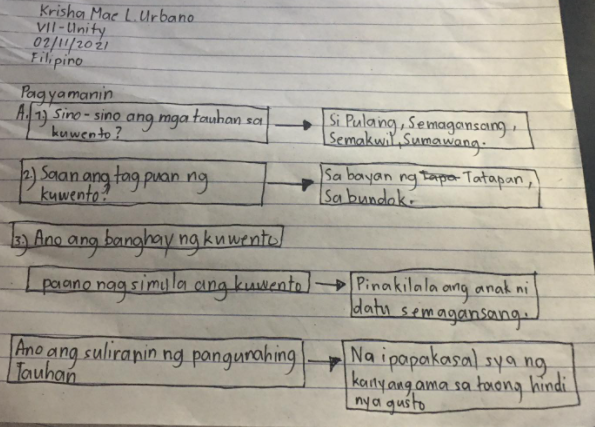 Krisha Mae L. Urbano
VII-Unity
02/11/2021
Filipino
Pagyamanin
A. 1) Sino-sino ang mga tauhan sa
kuwento?
Si Pulang, Semagansang,
Semakwil, Sumawang.
2) Saan ang tag puan ng
kuwento?
Sa bayan ng Tapa Tatapan,
Sa bundok.
3.) Ano ang banghay ng kuwento
paano nagsimula ang kuwento
Pinakilala ang anak ni
datu semagansang.
Ano ang suliranin ng pangunahing
Tauhan
Na ipapakasal sya ng
kanyang ama sa taong hindi
nya gusto